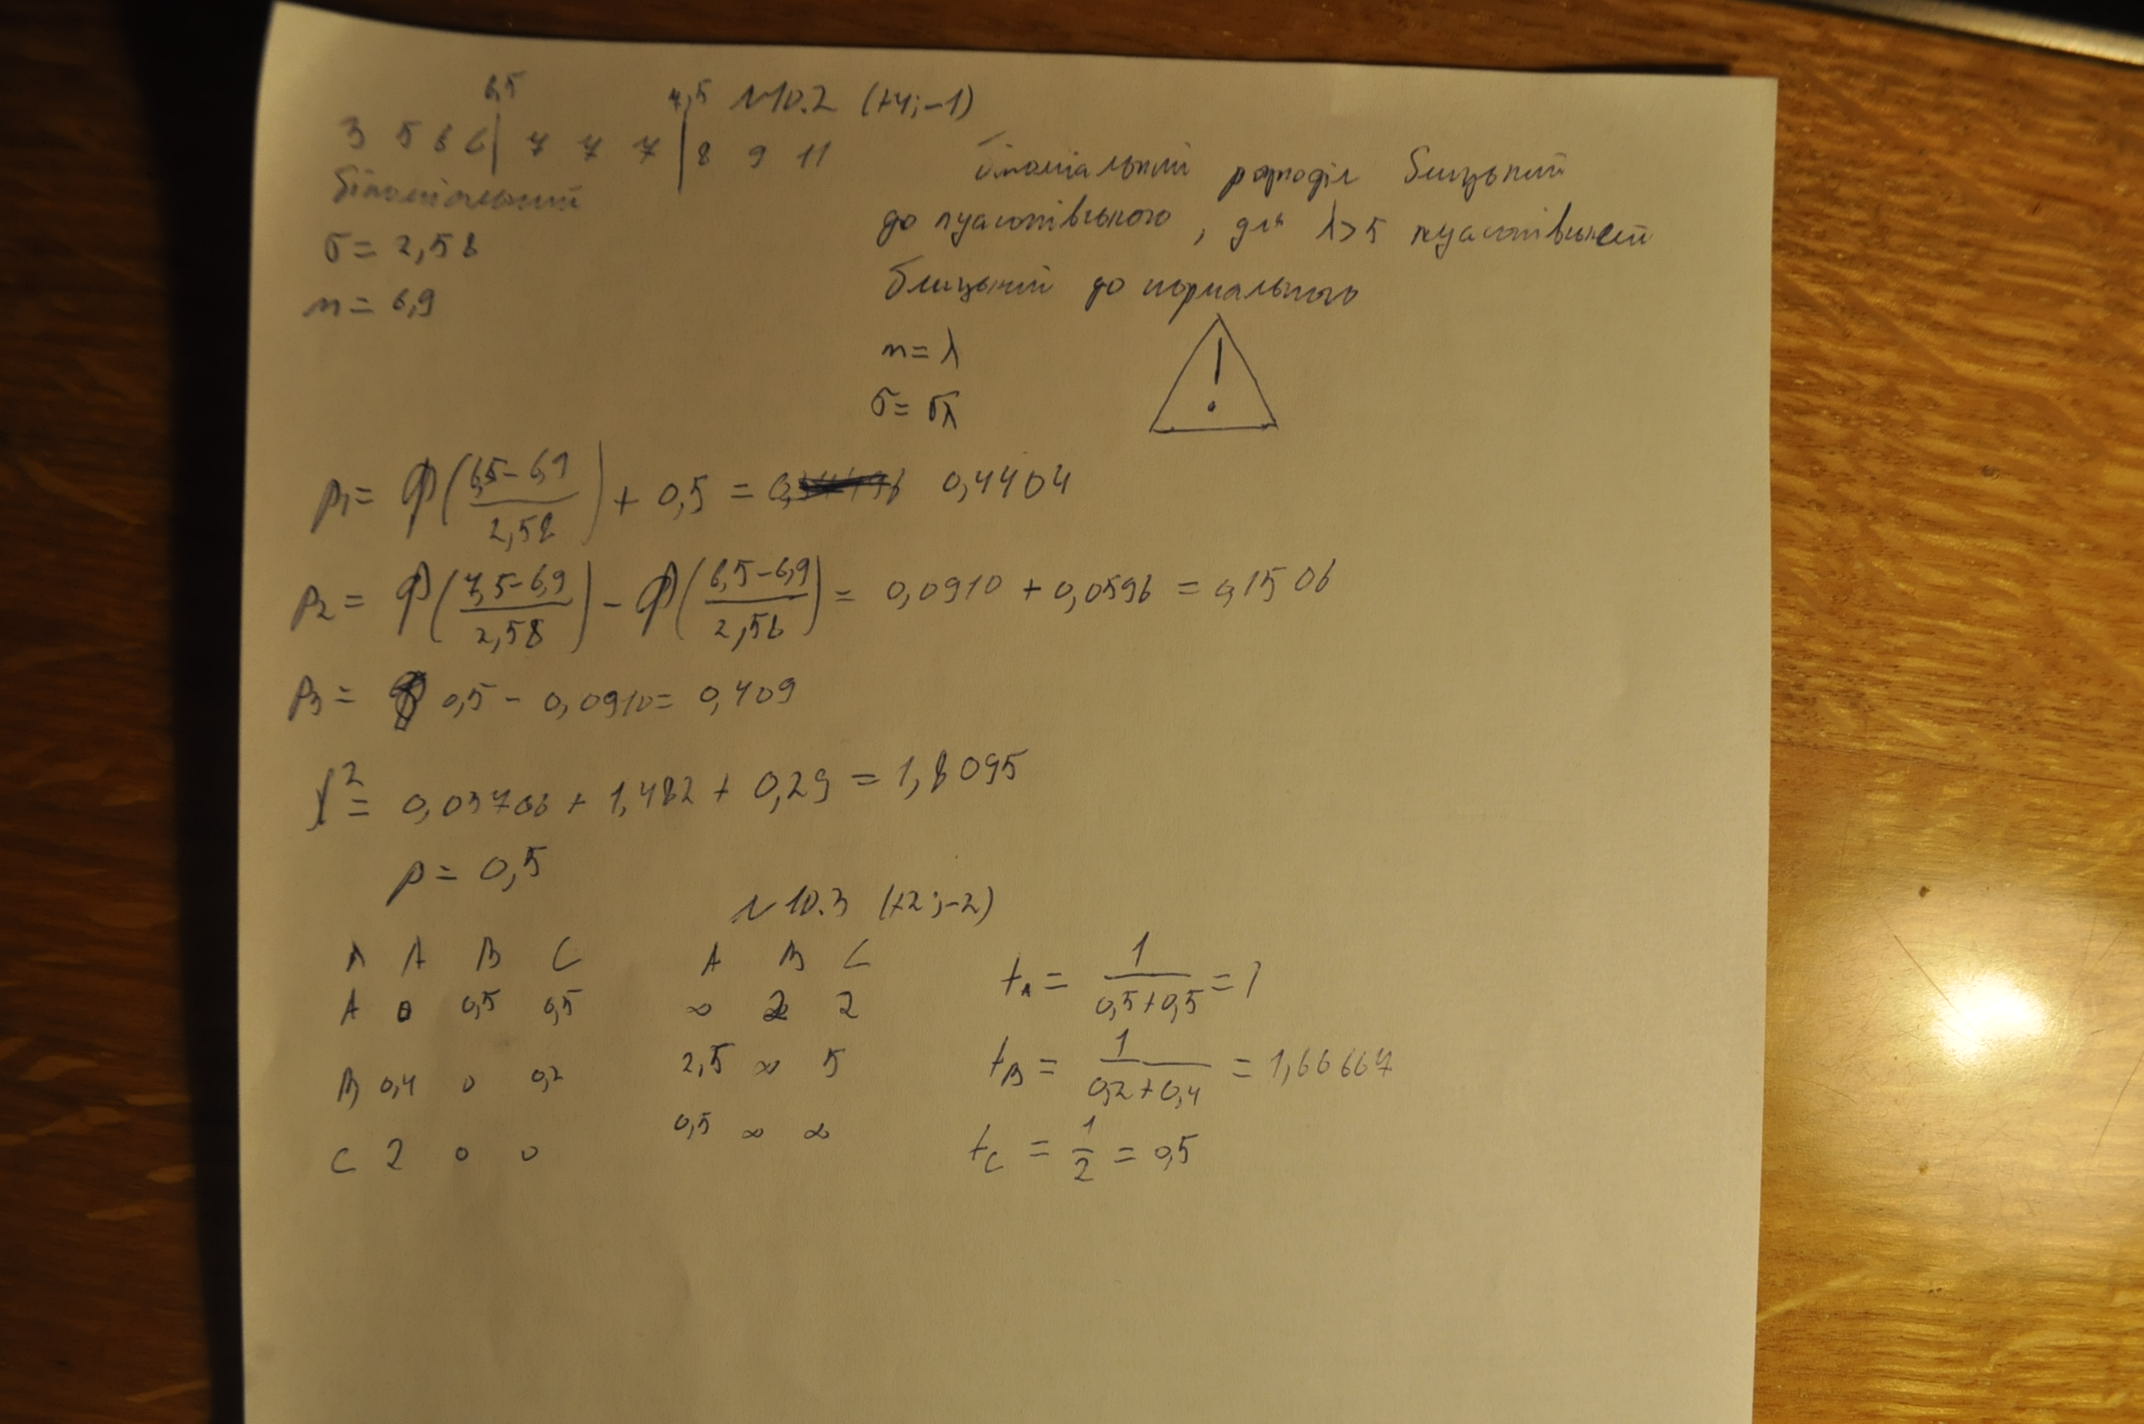 6,5 7,5 №10.2 (+4;-1)
3 5 6 6 | 7 7 7 | 8 9 11
біноміальний
σ= 2,58
m= 6,9
біноміальний розподіл близький
до пуасонівського, для λ>5 пуасонівський
близький до нормального
m= λ
σ= √λ
!
p₁= Ф((6,5-6,9)/2,58) + 0,5 = 0,4404
p₂= Ф((7,5-6,9)/2,58) - Ф((6,5-6,9)/2,58) = 0,0910 + 0,0596 = 0,1506
p₃= 0,5 - 0,0910= 0,409
χ²= 0,03706 + 1,482 + 0,29 = 1,8095
p= 0,5
№10.3 (+2;-2)
A A B C A B C
A 0 0,5 0,5 ∞ 2 2 t_A= 1/(0,5+0,5) = 1
B 0,4 0 0,2 2,5 ∞ 5 t_B= 1/(0,2+0,4) = 1,66667
C 2 0 0 0,5 ∞ ∞ t_C = 1/2 = 0,5